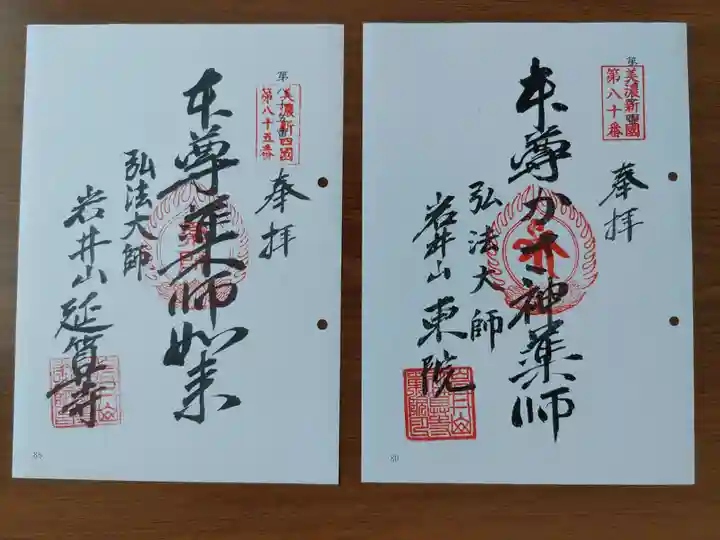 奉拝
第
美濃新四國
第八十五番
本尊薬師如来
弘法大師
岩井山延算寺
85
奉拝
第
美濃新四國
第八十番
本尊かさ神薬師
弘法大師
岩井山東院
80